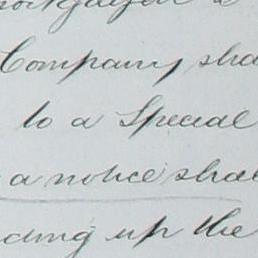 Company sha
to a Special
a notice shal
ding up the